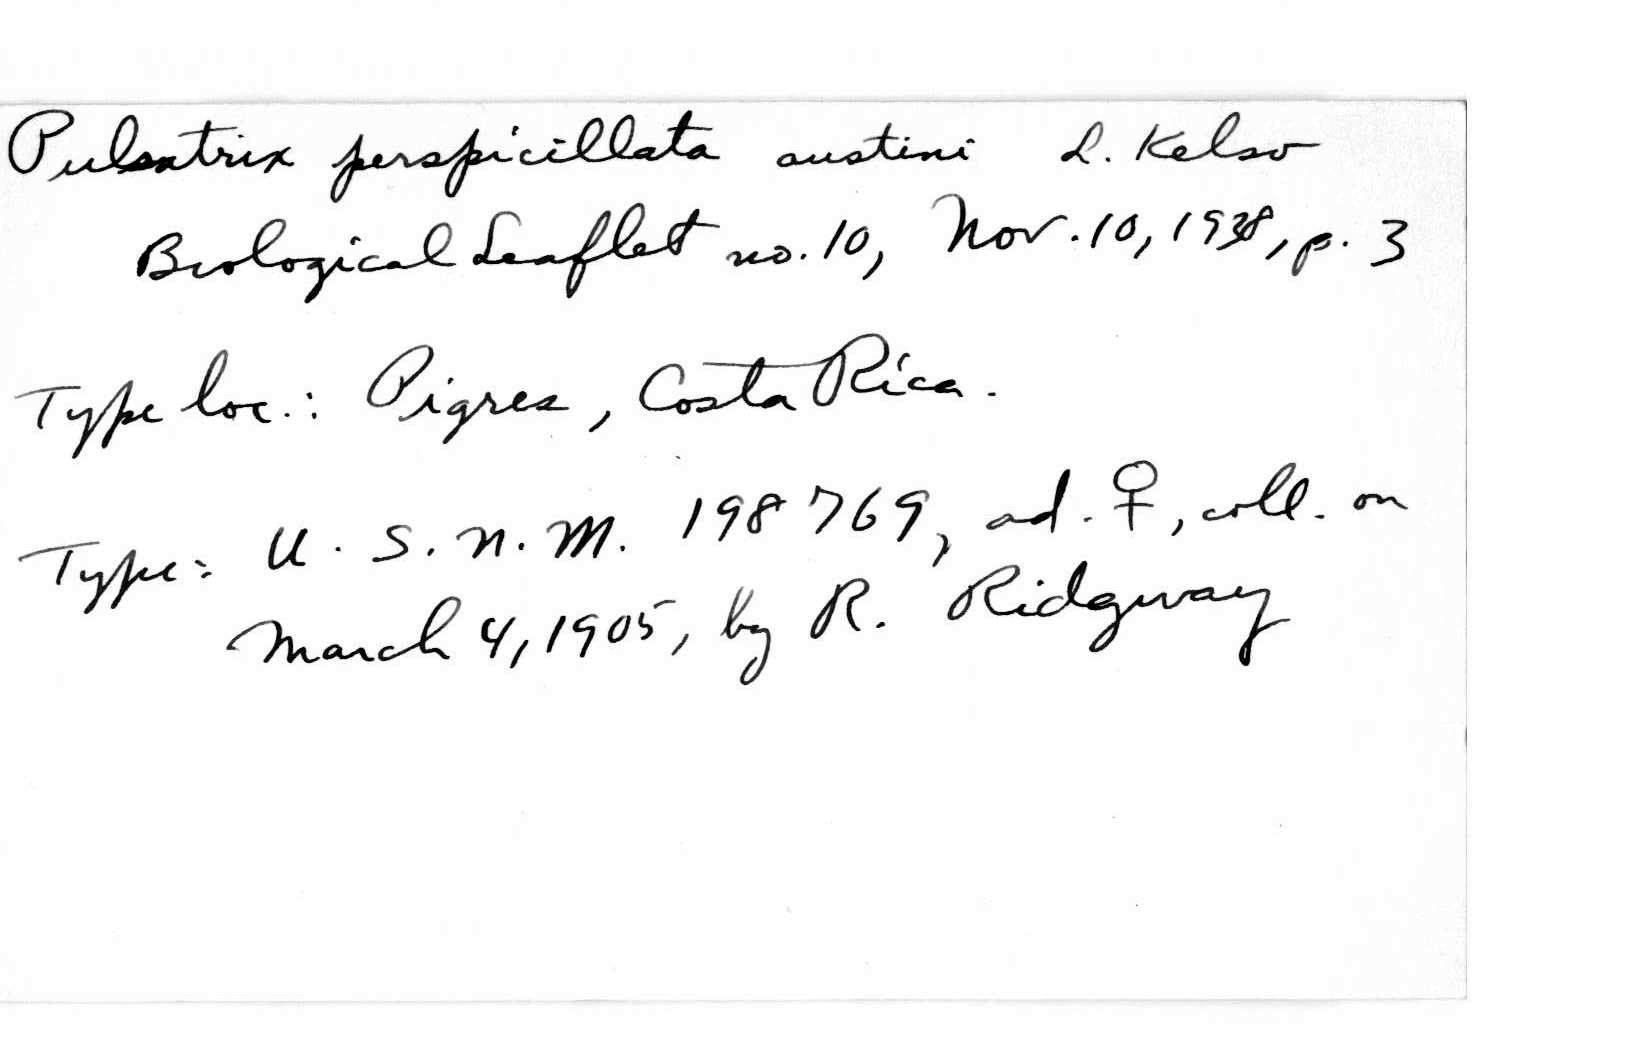 Pulsatrix perspicillata austini L. Kelso
Biological Leaflet no. 10, Nov. 10, 1938, p. 3
Type loc.: Pigres, Costa Rica.
Type: U. S. N. M. 198769, ad. ♀, coll. on
March 4, 1905, by R. Ridgway